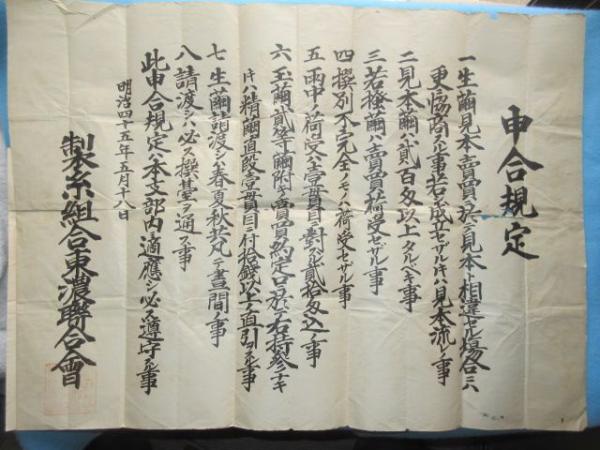 申合規定
一生繭見本賣買ニ於テ見本ト相違セル塲合ハ
更ニ協商スル事若シ成立セザルキハ見本流レノ事
二見本繭ハ貳百匁以上タルベキ事
三若掻繭ハ賣買荷受セザル事
四撰別不完全ノモノハ荷受セザル事
五雨中ノ荷受ハ壹貫目ニ對スル貳拾匁込ノ事
六玉繭貳等繭附キ賣買約定ニ於テ右持參ナキ
キハ精繭直段壹貫目ニ付拾錢以上ノ直引スル事
七生繭請渡シハ春夏秋共凡テ晝間ノ事
八請渡シハ必ス撰基ヲ通ス事
此申合規定ハ本支部内ニ適應シ必ス遵守スル事
明治四十五年五月十八日
製糸組合東濃聯合會